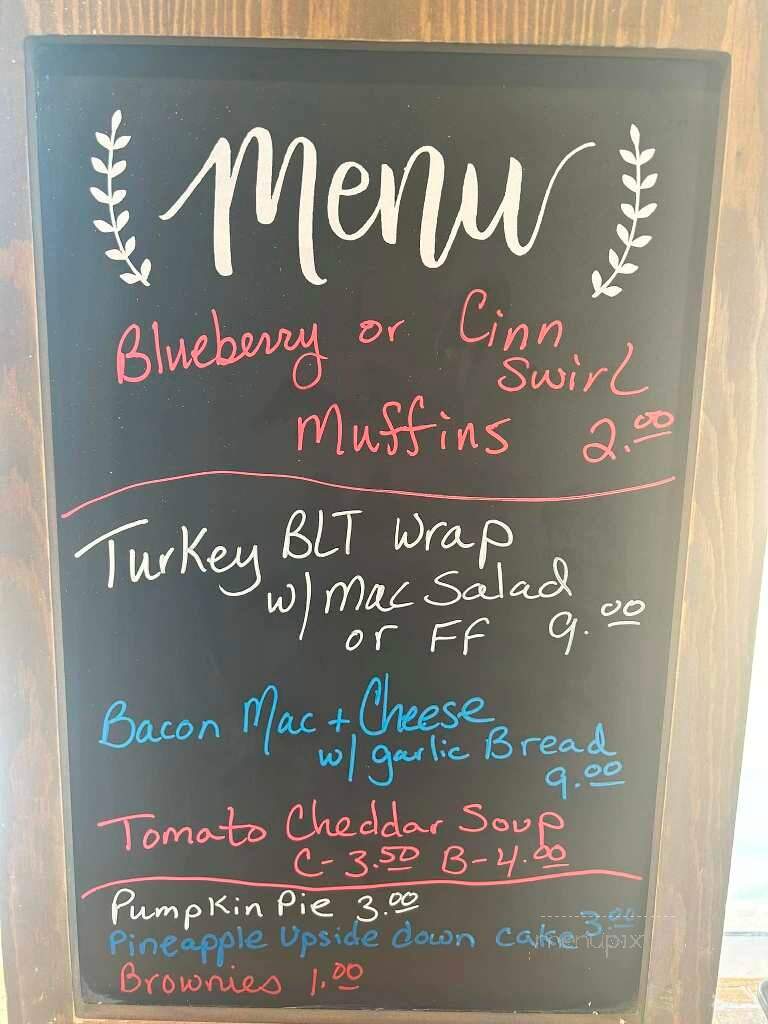 Menu
Blueberry or Cinn
Swirl
Muffins 2.00
Turkey BLT Wrap
w/ Mac Salad
or FF 9.00
Bacon Mac + Cheese
w/ garlic Bread
9.00
Tomato Cheddar Soup
C- 3.50 B- 4.00
Pumpkin Pie 3.00
Pineapple Upside down cake 3.00
menupix
Brownies 1.00